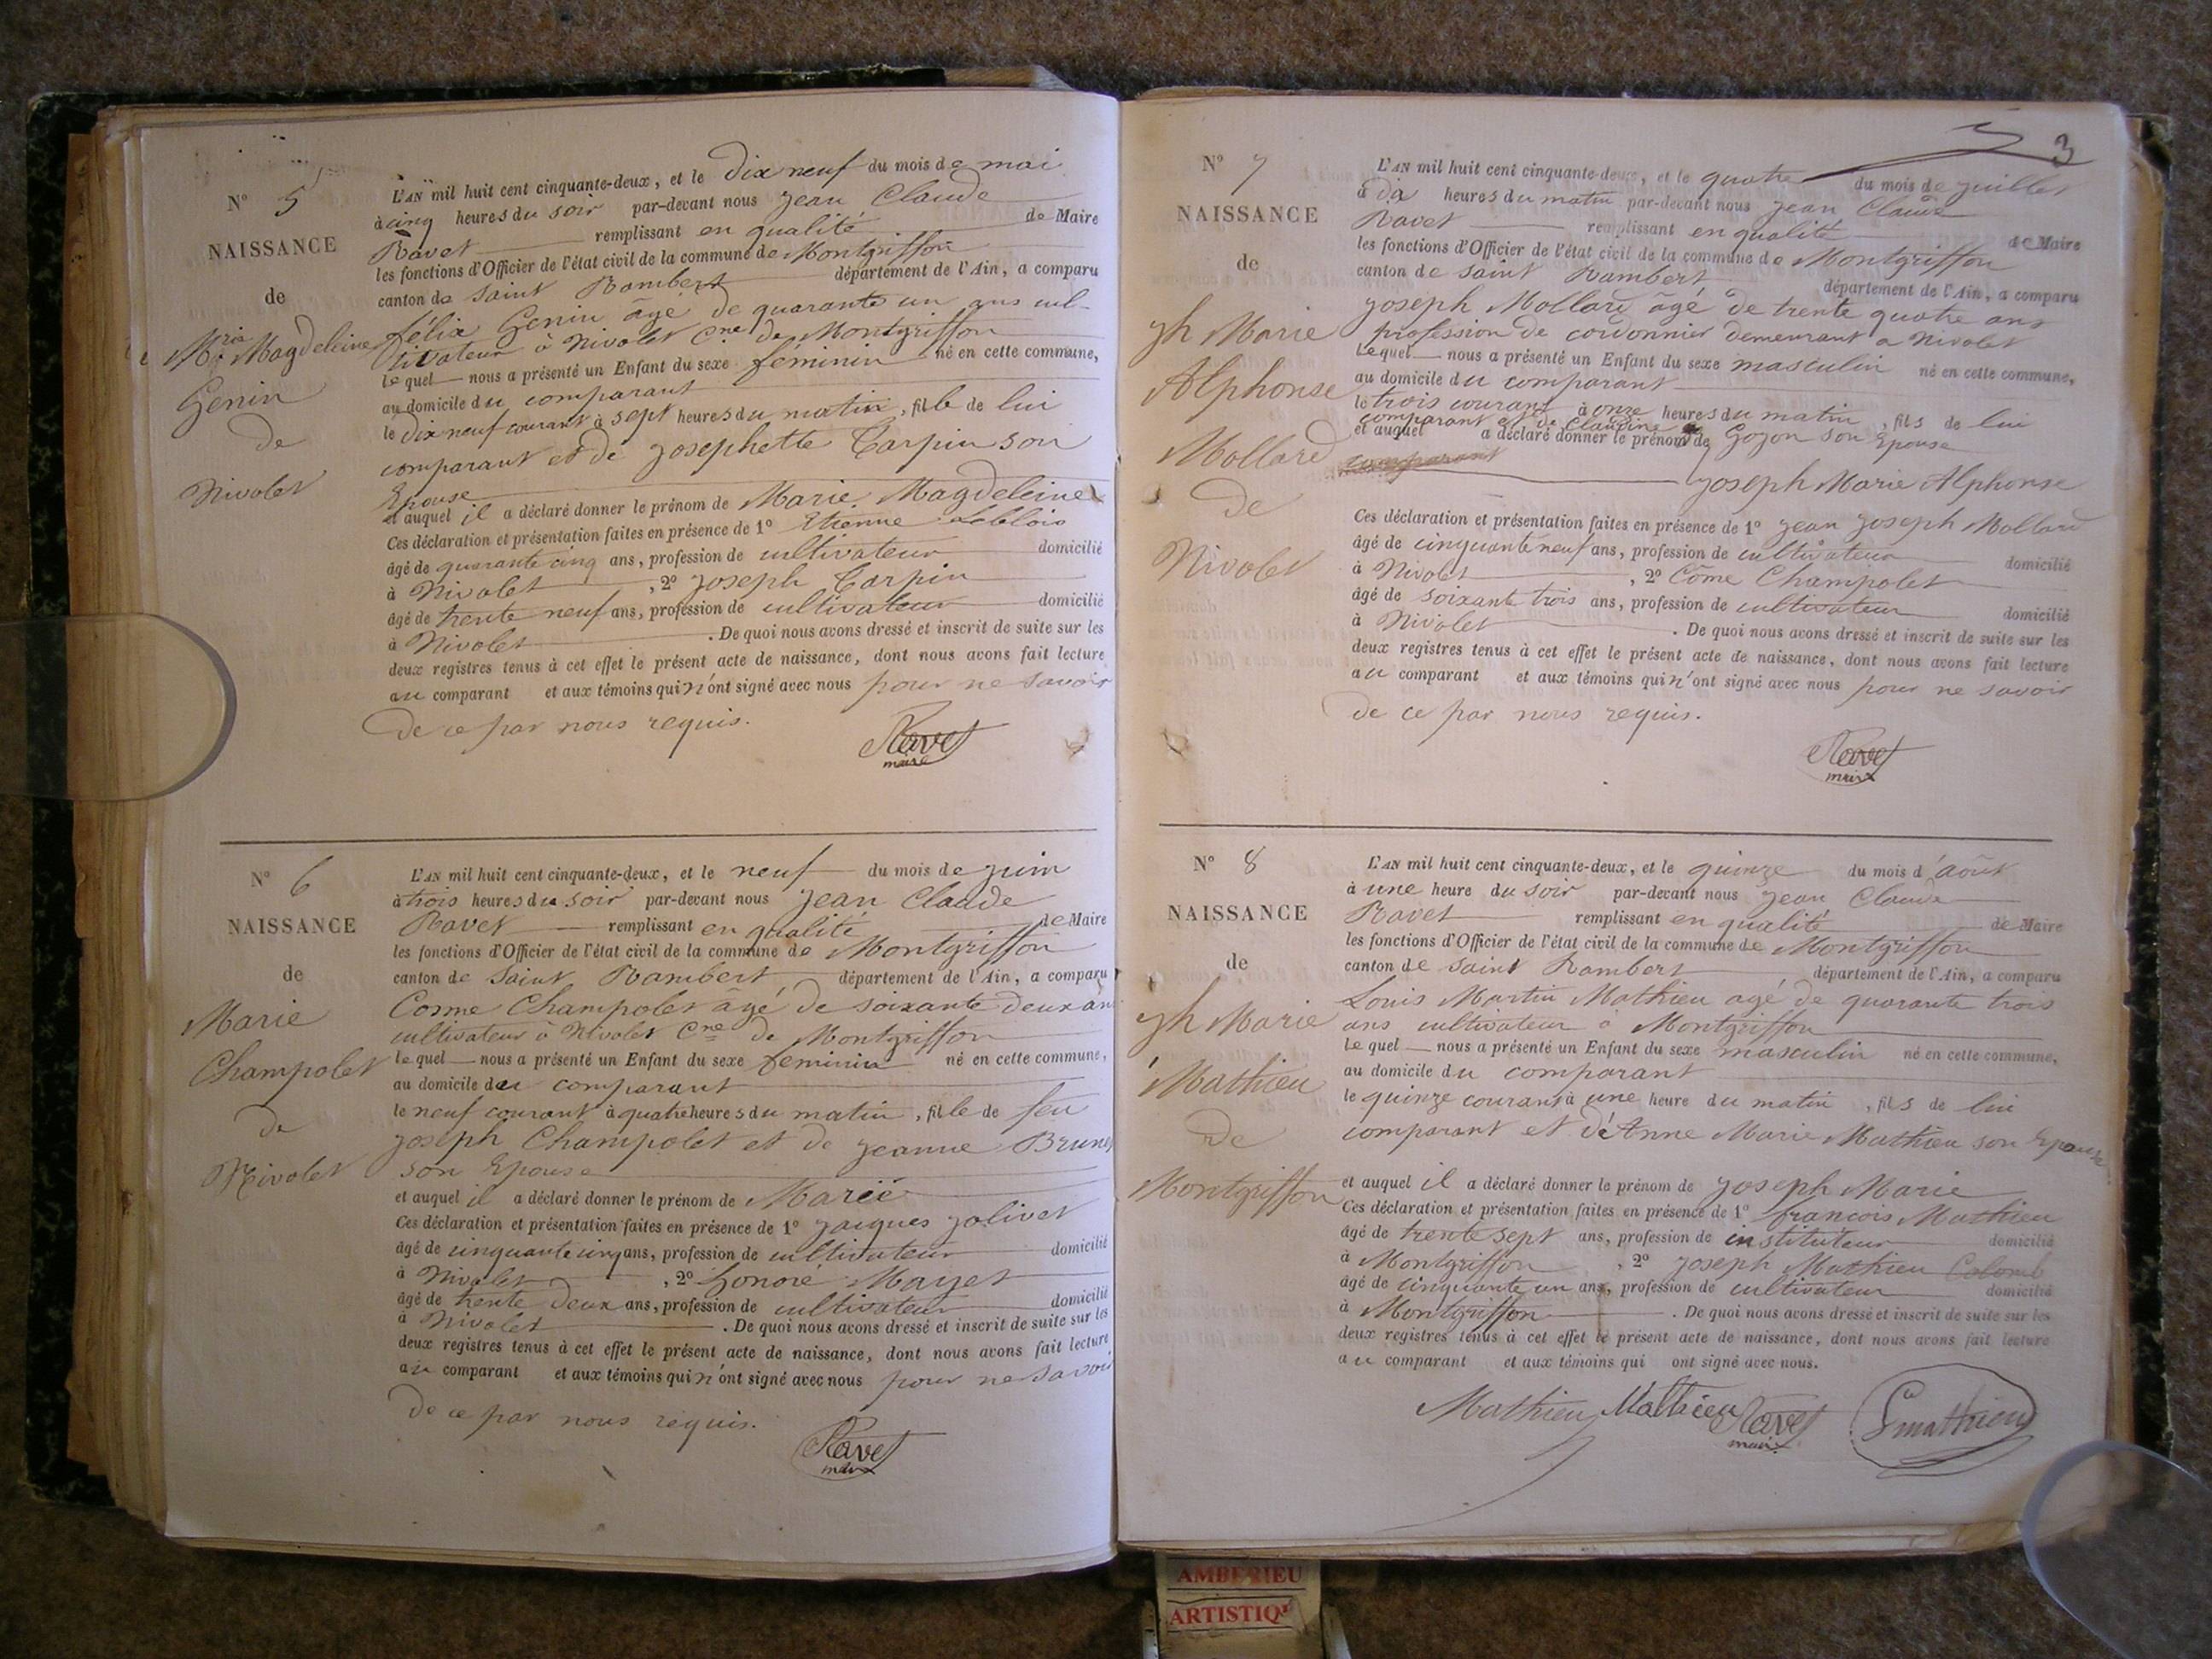 N° 5
NAISSANCE
de
Mria Magdeleine
Genin
de
Nivolet
L'AN mil huit cent cinquante-deux, et le dix neuf du mois de mai
à cinq heures du soir par-devant nous jean Claude
Ravet remplissant en qualité de Maire
les fonctions d'Officier de l'état civil de la commune de Montgriffon
canton de saint Rambert département de l'Ain, a comparu
félix Genin âgé de quarante un ans cul-
tivateur à Nivolet Cne de Montgriffon
lequel nous a présenté un Enfant du sexe féminin né en cette commune,
au domicile du comparant
le dix neuf courant à sept heures du matin, fille de lui
comparant et de josephette Carpin son
Epouse
et auquel il a déclaré donner le prénom de Marie Magdeleine
Ces déclaration et présentation faites en présence de 1° Etienne Leblois
âgé de quarante cinq ans, profession de cultivateur domicilié
à Nivolet, 2° joseph Carpin
âgé de trente neuf ans, profession de cultivateur domicilié
à Nivolet. De quoi nous avons dressé et inscrit de suite sur les
deux registres tenus à cet effet le présent acte de naissance, dont nous avons fait lecture
au comparant et aux témoins qui n'ont signé avec nous pour ne savoir
de ce par nous requis.
Ravet
maire
N° 6
NAISSANCE
de
Marie
Champolet
de
Nivolet
L'AN mil huit cent cinquante-deux, et le neuf du mois de juin
à trois heures du soir par-devant nous jean Claude
Ravet remplissant en qualité de Maire
les fonctions d'Officier de l'état civil de la commune de Montgriffon
canton de saint Rambert département de l'Ain, a comparu
Cosme Champolet âgé de soixante deux an
cultivateur à Nivolet Cne de Montgriffon
lequel nous a présenté un Enfant du sexe féminin né en cette commune,
au domicile du comparant
le neuf courant à quatre heures du matin, fille de feu
joseph Champolet et de jeanne Brunet
son Epouse
et auquel il a déclaré donner le prénom de Marie
Ces déclaration et présentation faites en présence de 1° jacques jolivet
âgé de cinquante cinq ans, profession de cultivateur domicilié
à Nivolet, 2° honoré Mayet
âgé de trente deux ans, profession de cultivateur domicilié
à Nivolet. De quoi nous avons dressé et inscrit de suite sur les
deux registres tenus à cet effet le présent acte de naissance, dont nous avons fait lecture
au comparant et aux témoins qui n'ont signé avec nous pour ne savoir
de ce par nous requis.
Ravet
maire
3
N° 7
NAISSANCE
de
ph Marie
Alphonse
Mollard
de
Nivolet
L'AN mil huit cent cinquante-deux, et le quatre du mois de juillet
à dix heures du matin par-devant nous jean Claude
Ravet remplissant en qualité de Maire
les fonctions d'Officier de l'état civil de la commune de Montgriffon
canton de saint Rambert département de l'Ain, a comparu
joseph Mollard âgé de trente quatre ans
profession de cordonnier demeurant a Nivolet
lequel nous a présenté un Enfant du sexe masculin né en cette commune,
au domicile du comparant
le trois courant à onze heures du matin, fils de lui
comparant et de Claudine Gojon son Epouse
et auquel a déclaré donner le prénom de
comparant joseph Marie Alphonse
Ces déclaration et présentation faites en présence de 1° jean joseph Mollard
âgé de cinquante neuf ans, profession de cultivateur domicilié
à Nivolet, 2° Côme Champolet
âgé de soixante trois ans, profession de cultivateur domicilié
à Nivolet. De quoi nous avons dressé et inscrit de suite sur les
deux registres tenus à cet effet le présent acte de naissance, dont nous avons fait lecture
au comparant et aux témoins qui n'ont signé avec nous pour ne savoir
de ce par nous requis.
Ravet
maire
N° 8
NAISSANCE
de
ph Marie
Mathieu
de
Montgriffon
L'AN mil huit cent cinquante-deux, et le quinze du mois d'août
à une heure du soir par-devant nous jean Claude
Ravet remplissant en qualité de Maire
les fonctions d'Officier de l'état civil de la commune de Montgriffon
canton de saint Rambert département de l'Ain, a comparu
Louis Martin Mathieu agé de quarante trois
ans cultivateur à Montgriffon
lequel nous a présenté un Enfant du sexe masculin né en cette commune,
au domicile du comparant
le quinze courant à une heure du matin, fils de lui
comparant et d'Anne Marie Mathieu son Epouse
et auquel il a déclaré donner le prénom de joseph Marie
Ces déclaration et présentation faites en présence de 1° francois Mathieu
âgé de trente sept ans, profession de instituteur domicilié
à Montgriffon, 2° joseph Mathieu Colomb
âgé de cinquante un ans, profession de cultivateur domicilié
à Montgriffon. De quoi nous avons dressé et inscrit de suite sur les
deux registres tenus à cet effet le présent acte de naissance, dont nous avons fait lecture
au comparant et aux témoins qui ont signé avec nous.
Mathieu Mathieu Ravet
maire
mathieu
AMBERIEU
ARTISTIQ